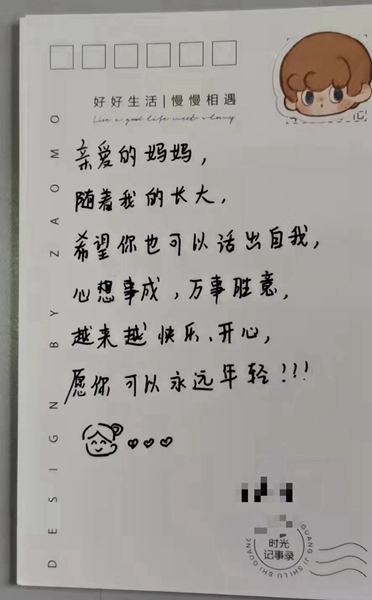 好好生活|慢慢相遇
亲爱的妈妈，
随着我的长大，
希望你也可以活出自我，
心想事成，万事胜意，
越来越快乐、开心，
愿你可以永远年轻！！！
DESIGN BY ZAOMO
时光
记事录
GUANG JI SHI LU SHI GUANG